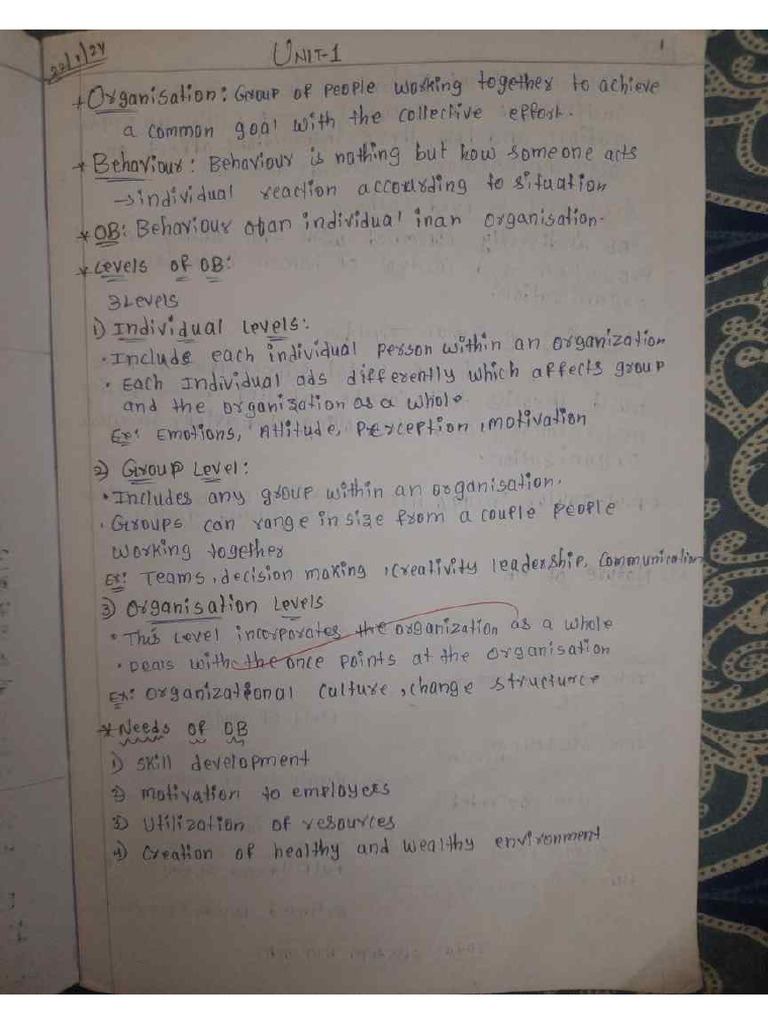 22/1/24
UNIT-1
1
* Organisation: Group of people working together to achieve
a common goal with the collective effort.
* Behaviour: Behaviour is nothing but how someone acts
→individual reaction according to situation
* OB: Behaviour of an individual in an organisation.
* Levels of OB:
3 Levels
1) Individual Levels:
• Include each individual person within an organization
• Each Individual ads differently which affects group
and the organization as a whole.
Ex: Emotions, Attitude, Perception, motivation
2) Group Level:
• Includes any group within an organisation.
• Groups can range in size from a couple people
working together
Ex: Teams, decision making, creativity leadership, communication
3) Organisation Levels
• This Level incorporates the organization as a whole
• Deals with the once points at the organisation
Ex: organizational culture, change structure
* Needs of OB
1) skill development
2) motivation to employees
3) Utilization of resources
4) Creation of healthy and wealthy environment